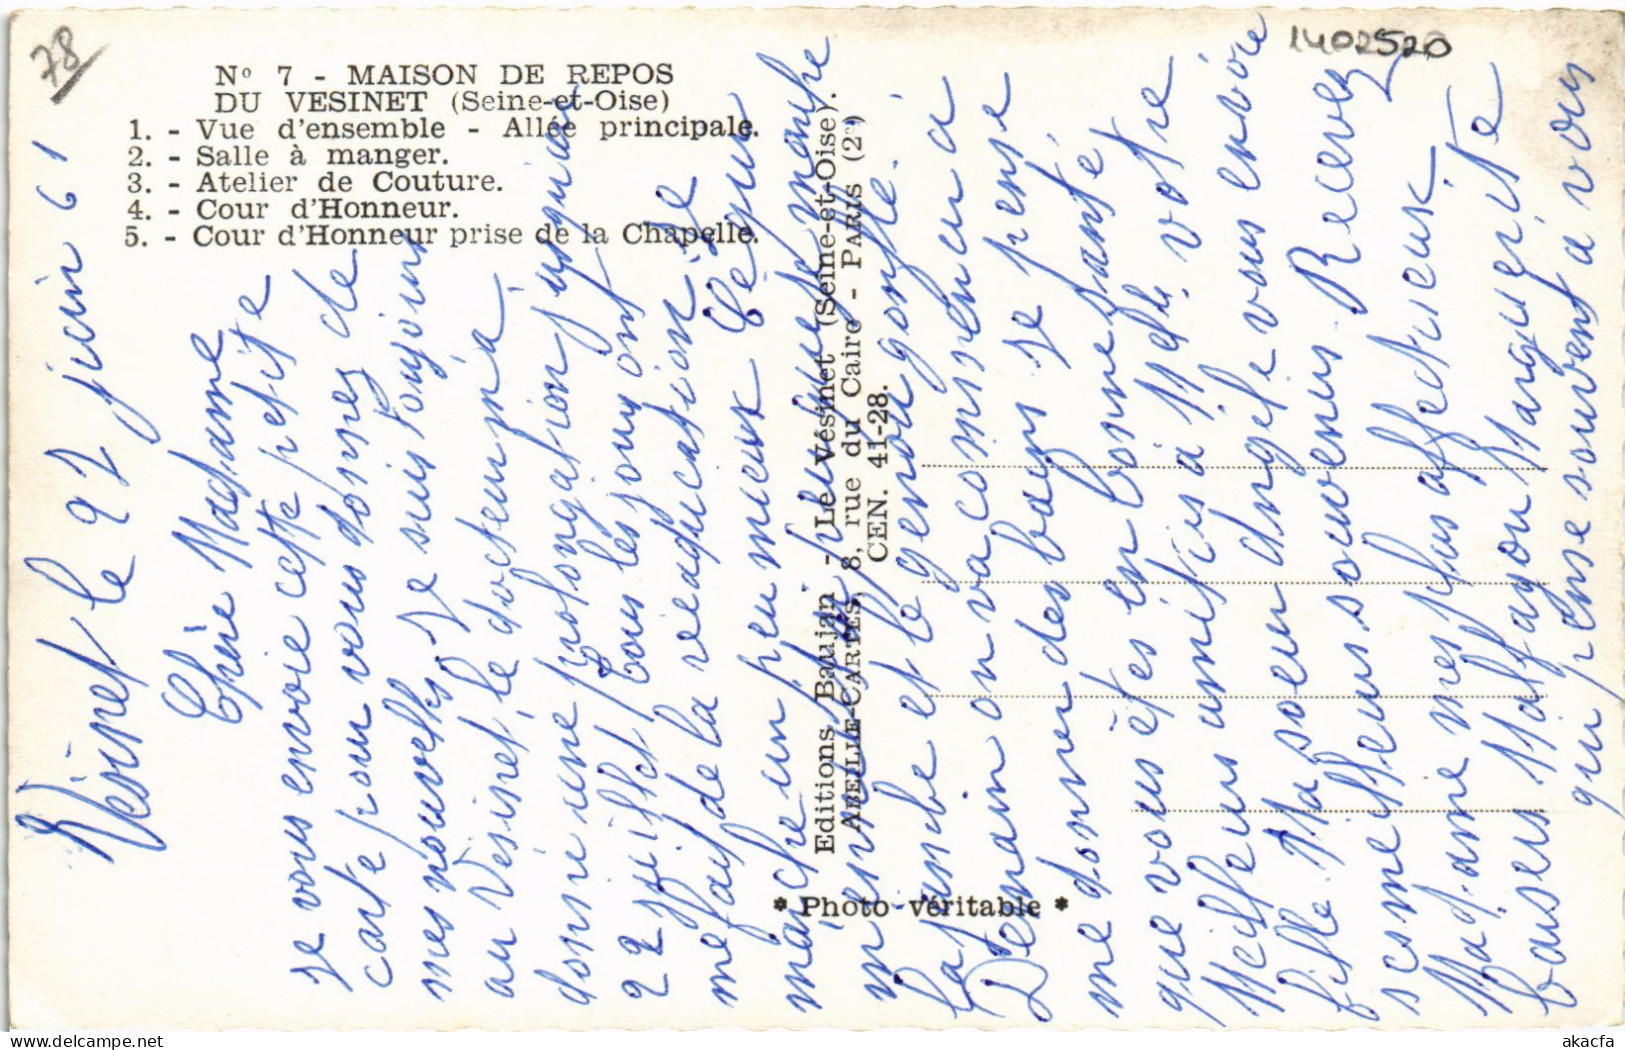 78
1402520
Nº 7 - MAISON DE REPOS
DU VESINET (Seine-et-Oise)
1. - Vue d'ensemble - Allée principale.
2. - Salle à manger.
3. - Atelier de Couture.
4. - Cour d'Honneur.
5. - Cour d'Honneur prise de la Chapelle.
Editions Baujan - Le Vésinet (Seine-et-Oise).
ABEILLE-CARTES, 8, rue du Caire - PARIS (2e)
CEN. 41-28.
* Photo véritable *
Vésinet le 27 juin 61
Chère Madame
Je vous envoie cette petite
carte pour vous donnes de
mes nouvells. Je suis toujours
au Vésinet, le docteur m'a
donné une prolongation jusquau
22 juillet tous les jours ont
me fait de la réaducation. Je
marche un peu mieux
la jambe et le genou gonflé.
Demain on va commencer a
me donner des bains Je pense
que vous êtes en bonne santé,
Meilleurs amitiés à Melle votre
fille. Ma soeur Angèle vous envoie
ses meilleurs souvenirs. Recevez
Madame mes plus affectueux
baisers Malfagou Marguerite
qui pense souvent à vous